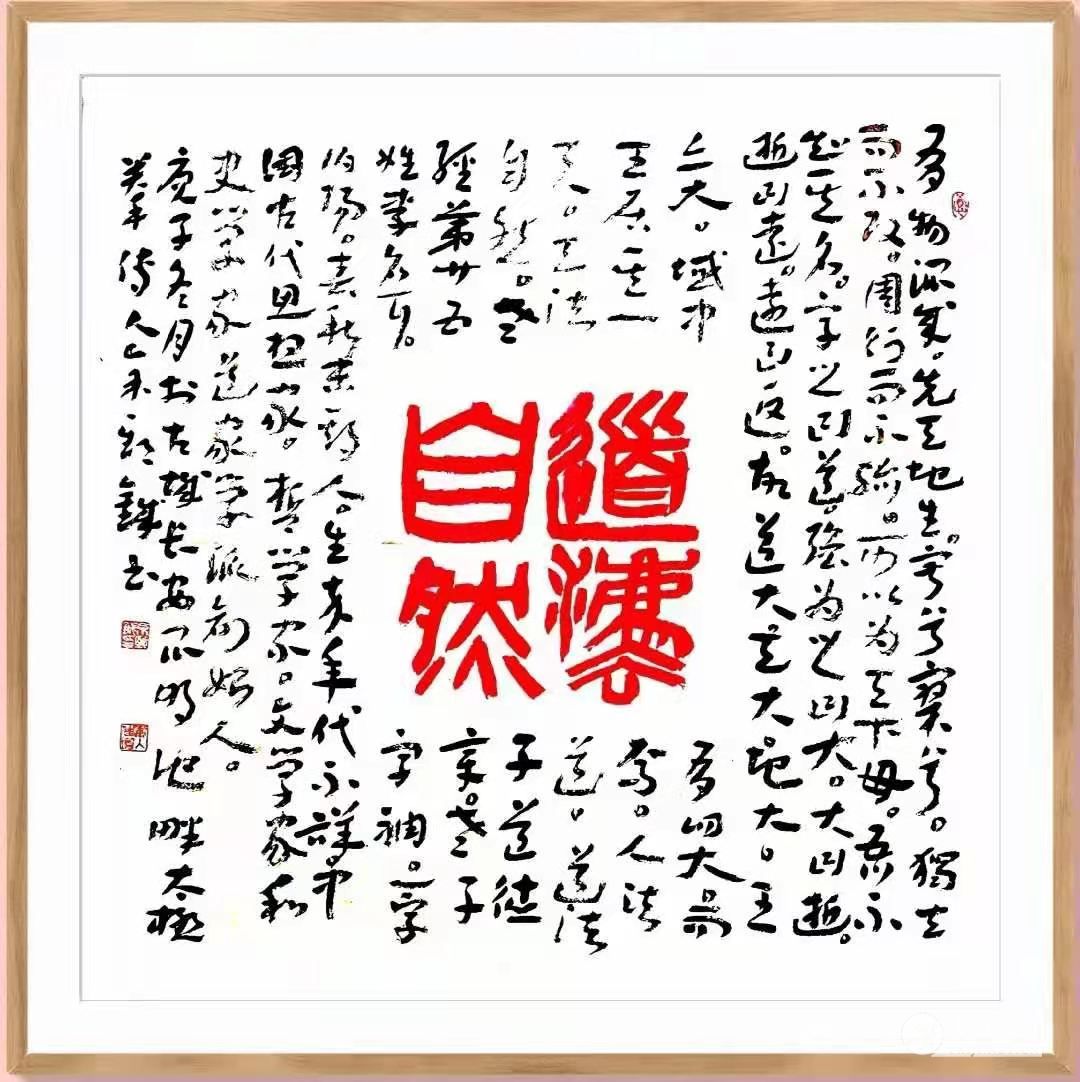 有物混成。先天地生。寂兮寞兮。獨立
而不改。周行而不殆。可以为天下母。吾不
知其名。字之曰道。強为之曰大。大曰逝。
逝曰遠。遠曰返。故道大天大。地大。王
亦大。域中有四大而
王居其一焉。人法
天。天法道。道法
自然。老子道德
經第廿五章。老子
姓李名耳。字聃。一字
伯陽。春秋末期人。生卒年代不詳。中
國古代思想家。哲学家。文学家和
史学家道家学派創始人。
庚子冬月於古城長安昆明池畔太極
拳傳人鐵書
道法
自然